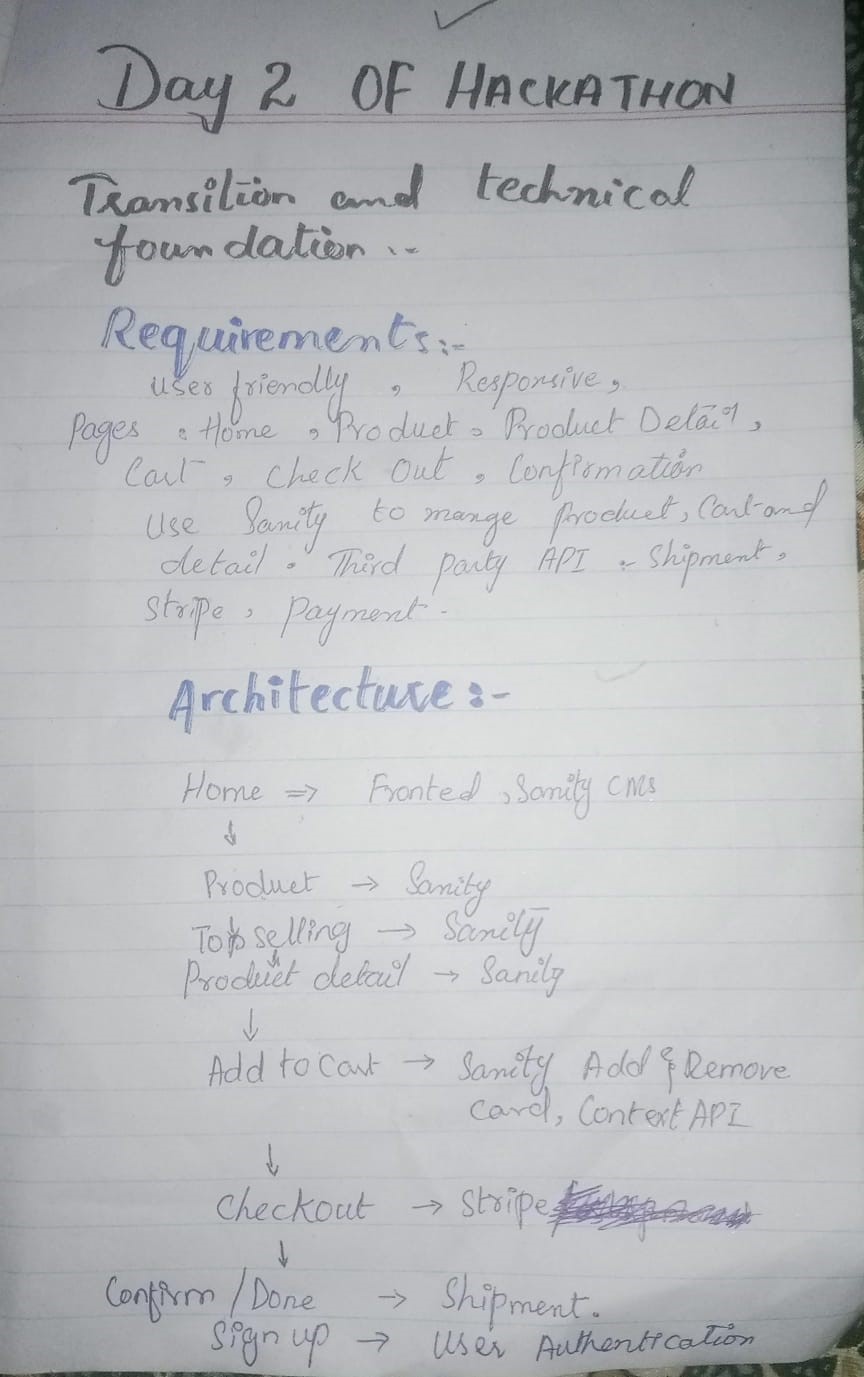 Day 2 OF HACKATHON
Transition and technical
foundation :-
Requirements:-
User friendly , Responsive,
Pages : Home , Product , Product Detail,
Cart , Check Out , Confirmation
Use Sanity to mange Product, Cart and
detail . Third party API :- Shipment,
Stripe , Payment .
Architecture :-
Home => Fronted , Sanity CMS
↓
Product → Sanity
Top selling → Sanity
Product detail → Sanity
↓
Add to Cart → Sanity Add & Remove
Card, Context API
↓
Checkout → Stripe
↓
Confirm / Done → Shipment.
Sign up → User Authentication